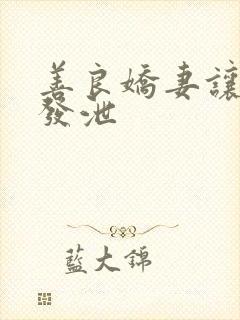 善良嬌妻讓
發泄
藍大錦